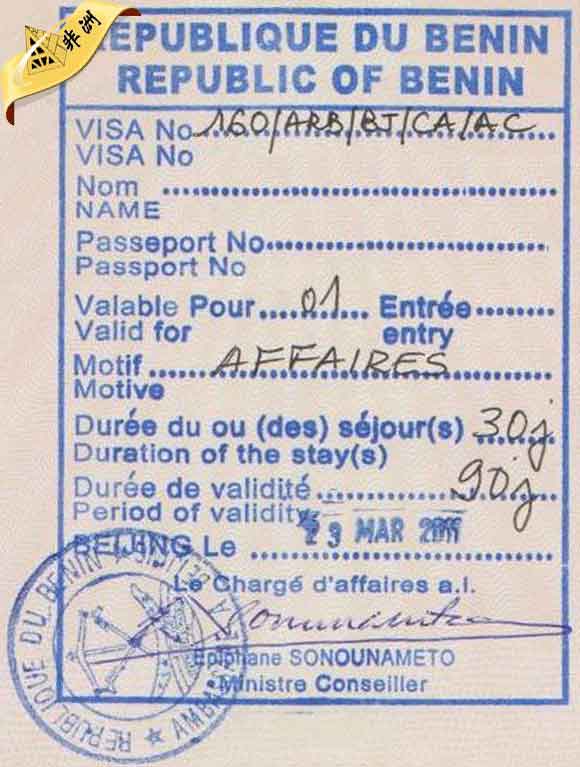 非洲
REPUBLIQUE DU BENIN
REPUBLIC OF BENIN
VISA No 160/ARB/BJ/CA/AC
VISA No
Nom
NAME
Passeport No
Passport No
Valable Pour 01 Entrée
Valid for entry
Motif AFFAIRES
Motive
Durée du ou (des) séjour(s) 30j
Duration of the stay(s)
Durée de validité 90j
Period of validity
23 MAR 2011
BEIJING Le
Le Chargé d'affaires a.i.
Epiphane SONOUNAMETO
Ministre Conseiller
REPUBLIQUE DU BENIN